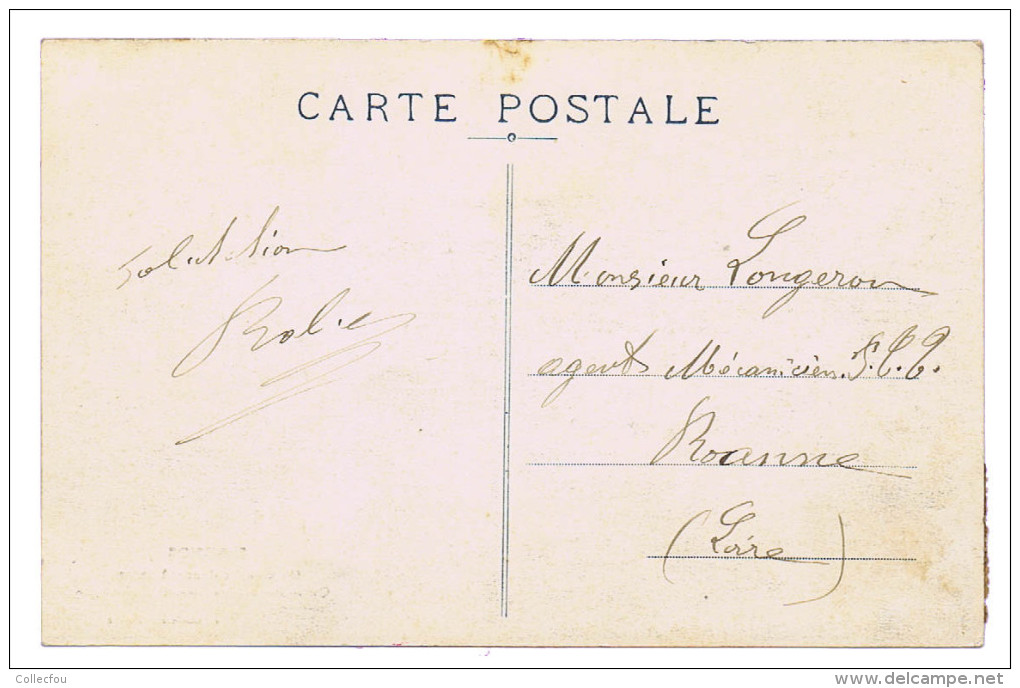 CARTE POSTALE
Salutation
Monsieur Longeron
agent Mécanicien P.T.T.
Roanne
(Loire)
Collecfou
www.delcampe.net